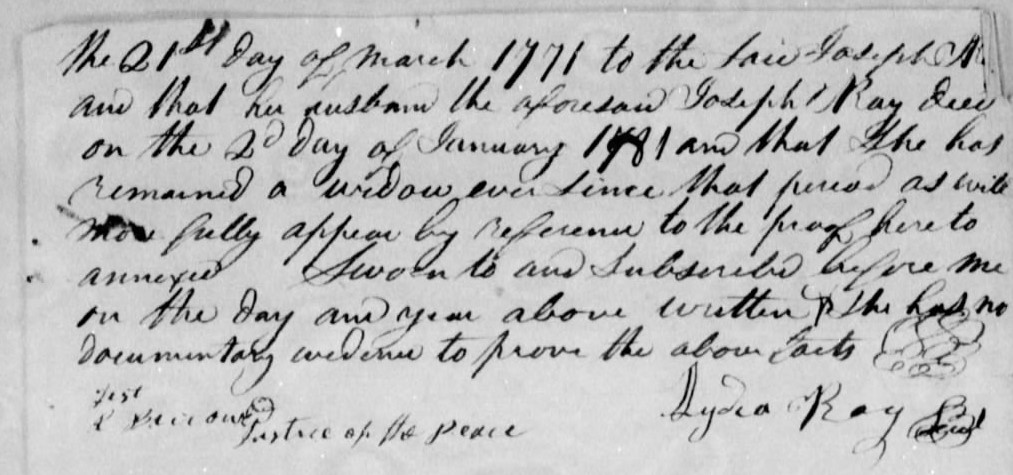 the 21st day of March 1771 to the said Joseph
and that her husband the aforesaid Joseph Ray died
on the 2d day of January 1781 and that she has
remained a widow ever since that period as will
more fully appear by reference to the proof hereto
annexed Sworn to and Subscribed before me
on the day and year above written & she has no
documentary evidence to prove the above facts
Test
Justice of the Peace
Lydia Ray Seal